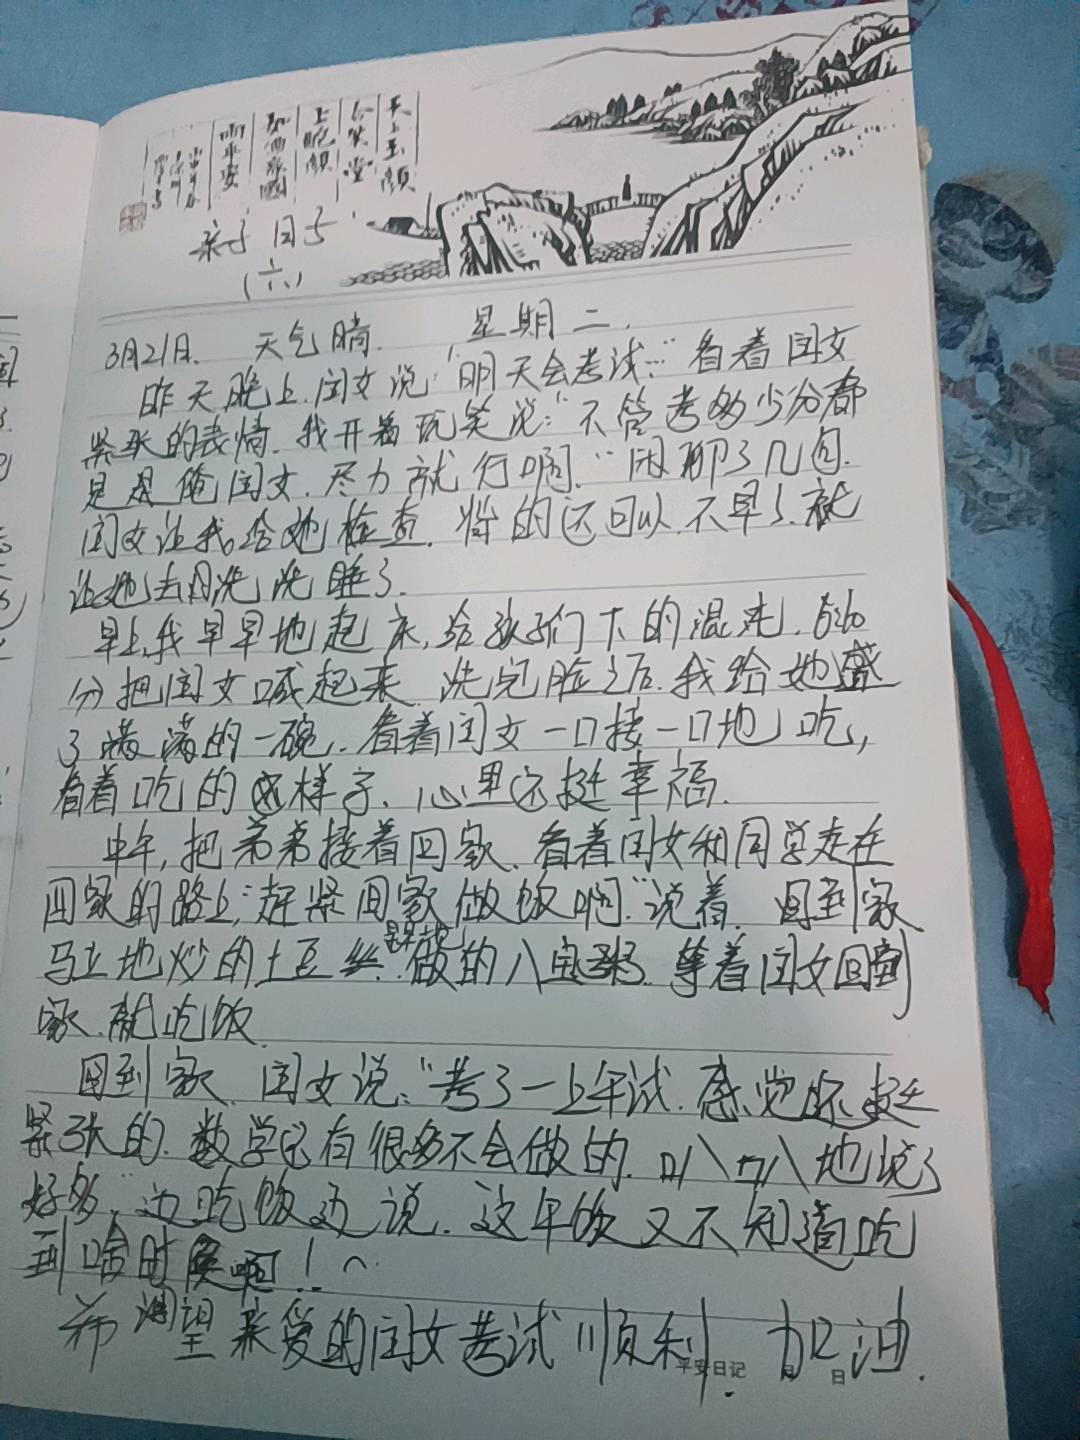 天上玉颜
亲子日子
(六)
3月21日. 天气晴. 星期二.
昨天晚上,闺女说:"明天会考试…"看着闺女
紧张的表情,我开着玩笑说:"不管考多少分都
是俺闺女,尽力就行啊."闲聊了几句.
闺女让我给她检查,背的还可以,不早了,就
让她去洗洗睡了.
早上,我早早地起床,给孩子们下的混沌,
分把闺女喊起来,洗完脸之后,我给她盛
了满满的一碗,看着闺女一口接一口地吃,
看着吃的样子,心里还挺幸福.
中午,把弟弟接着回家,看着闺女和同学走在
回家的路上,"赶紧回家做饭啊"说着,回到家
马上地炒的土豆丝,做的八宝粥,等着闺女回到
家,就吃饭.
回到家,闺女说:"考了一上午试,感觉还挺
紧张的,数学还有很多不会做的,叭叭地说了
好多,边吃饭边说,这午饭又不知道吃
到啥时候啊!~
希望亲爱的闺女考试顺利,加油.
平安日记 月 日